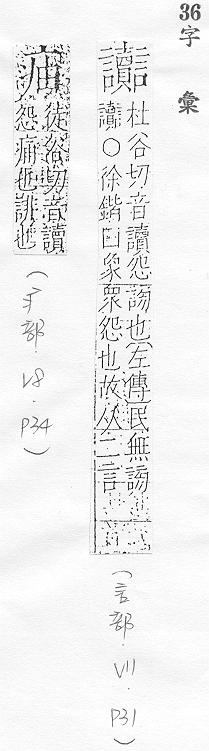 36字 彙
讟
杜谷切音讀怨謗也左傳民無謗
讟○徐鍇曰象衆怨也故从二言
(言部.VII.P31)
徒谷切音讀
怨痛也誹也
(疒部.V8.P34)